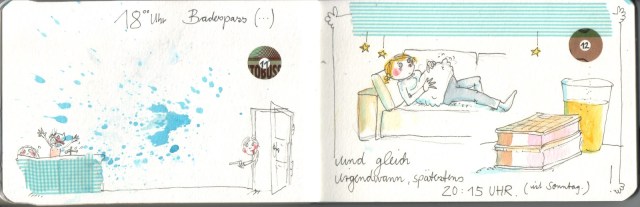 18⁰⁰ Uhr Badespass (...)
11
12
und gleich
irgendwann, spätestens
20:15 UHR. (weil Sonntag.)